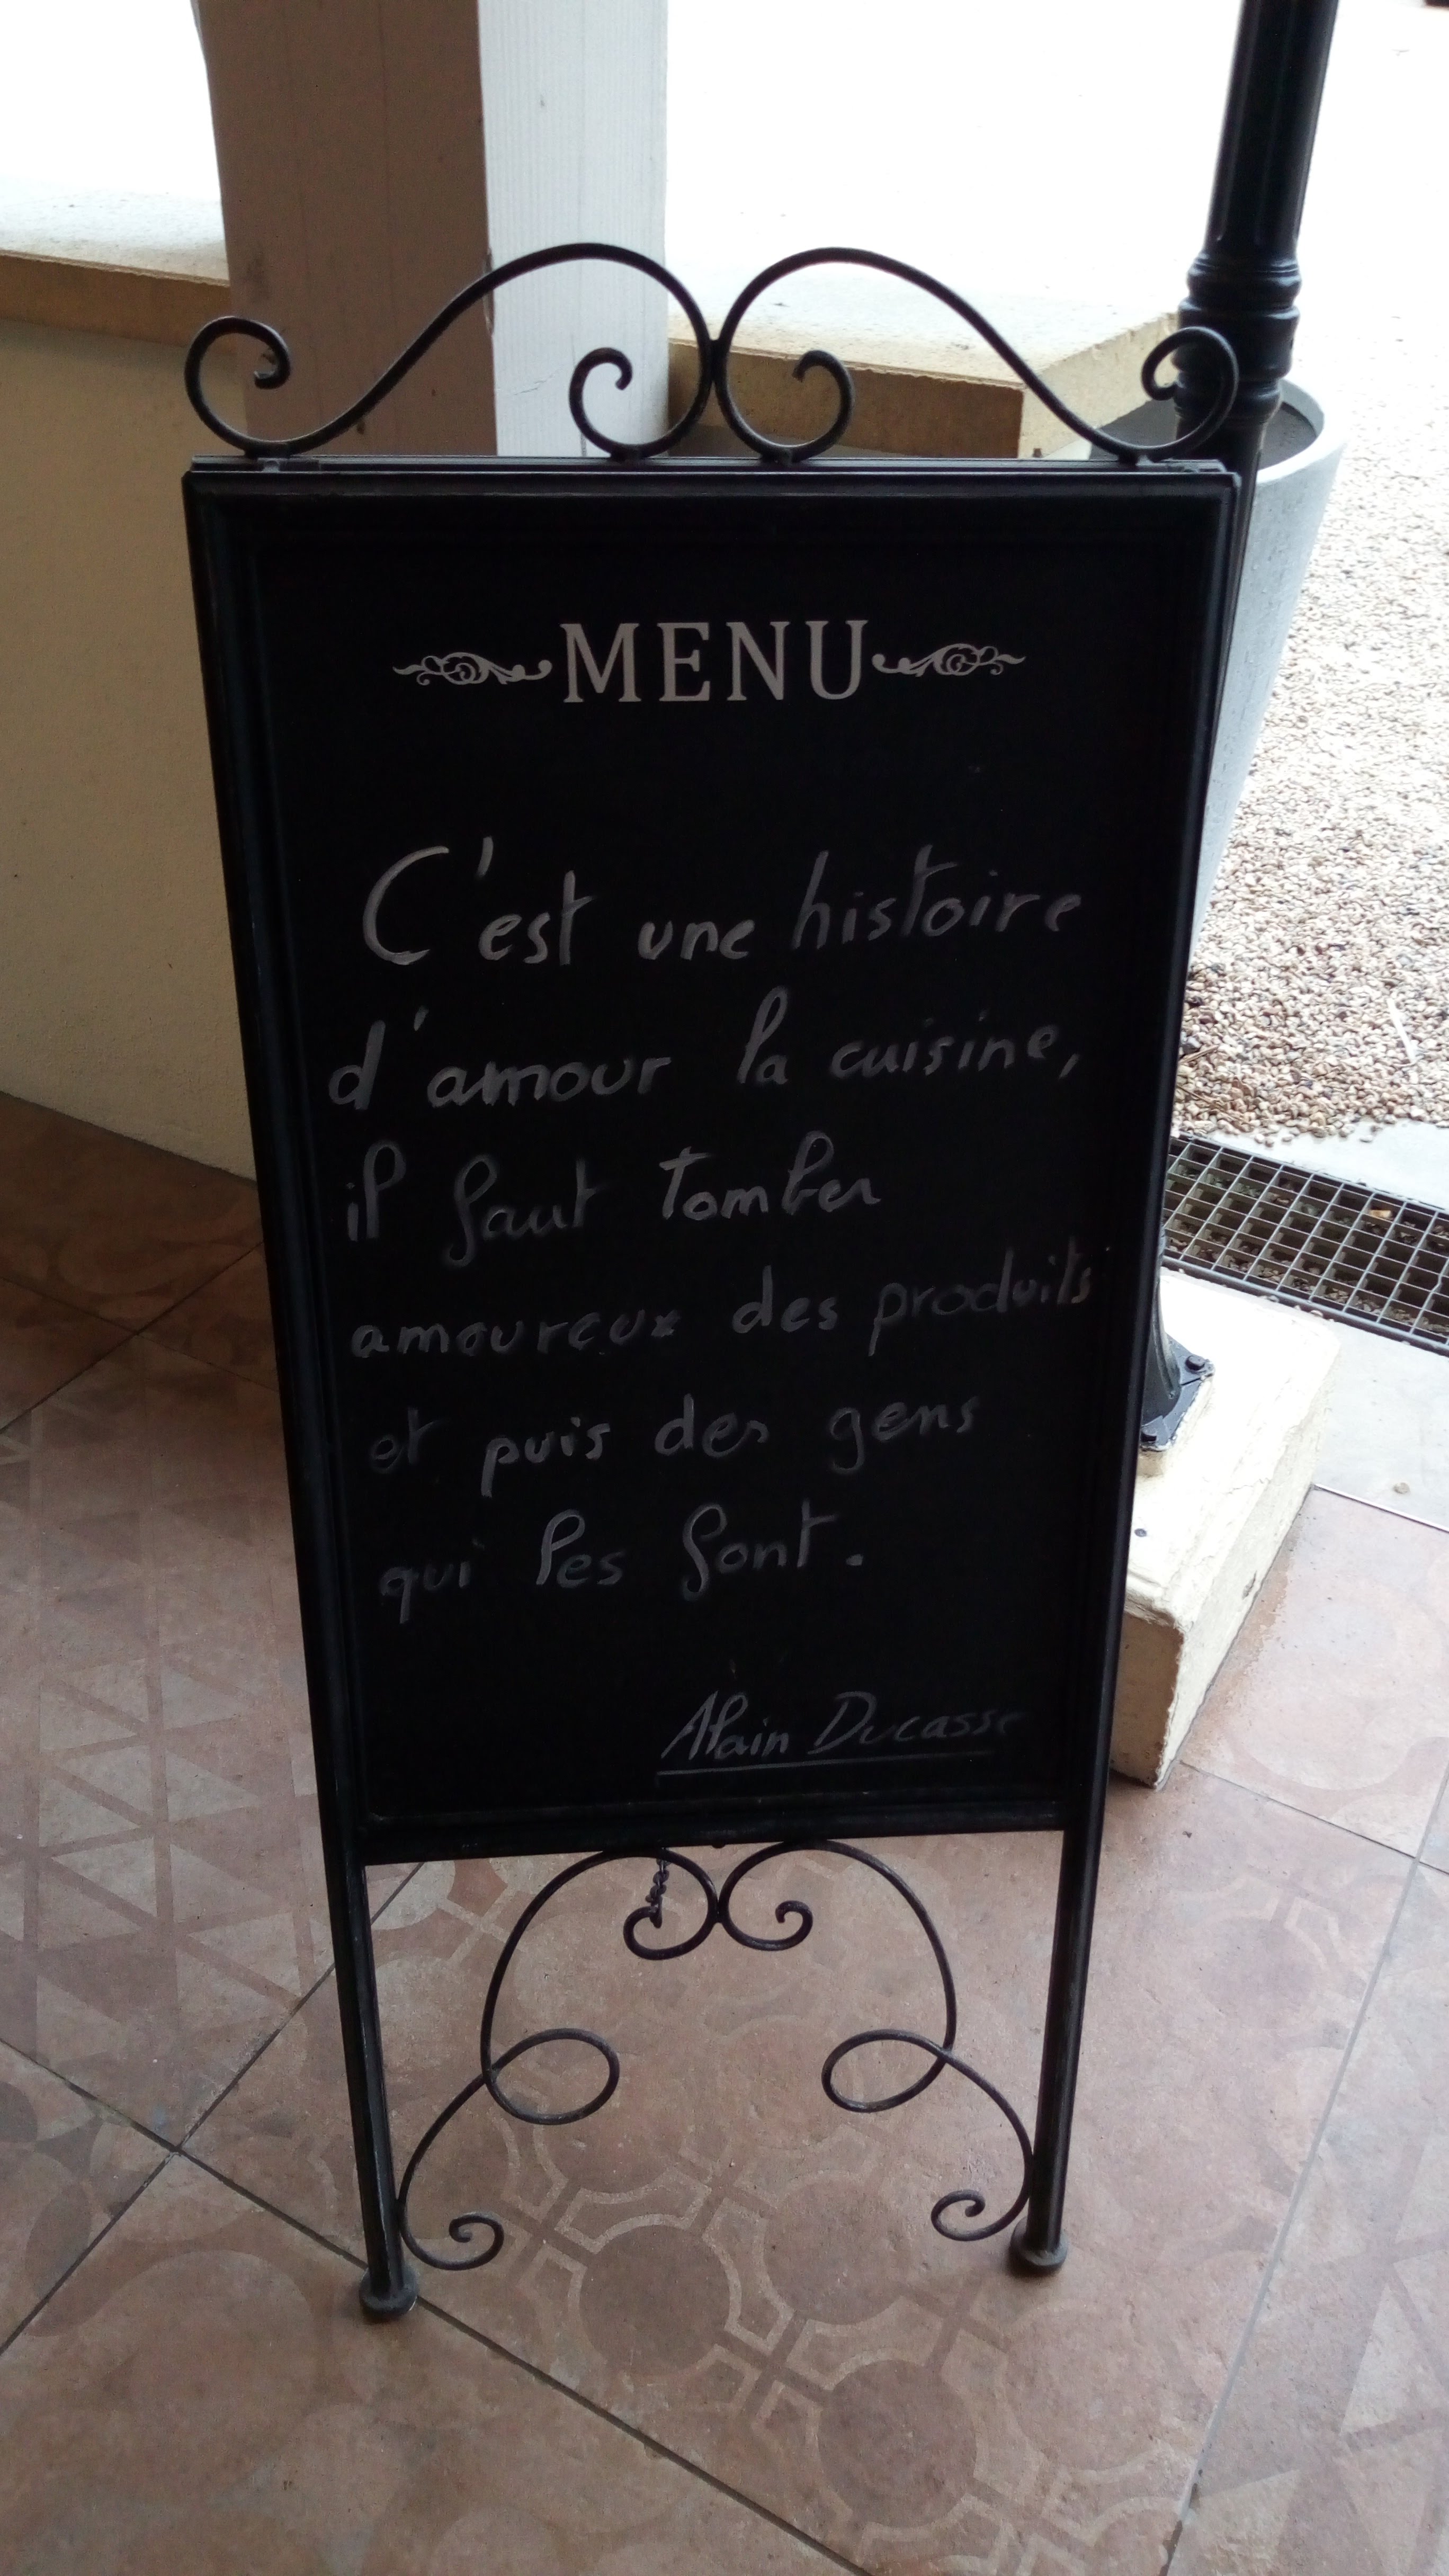 MENU
C'est une histoire
d'amour la cuisine,
il faut tomber
amoureux des produits
et puis des gens
qui les font.
Alain Ducasse